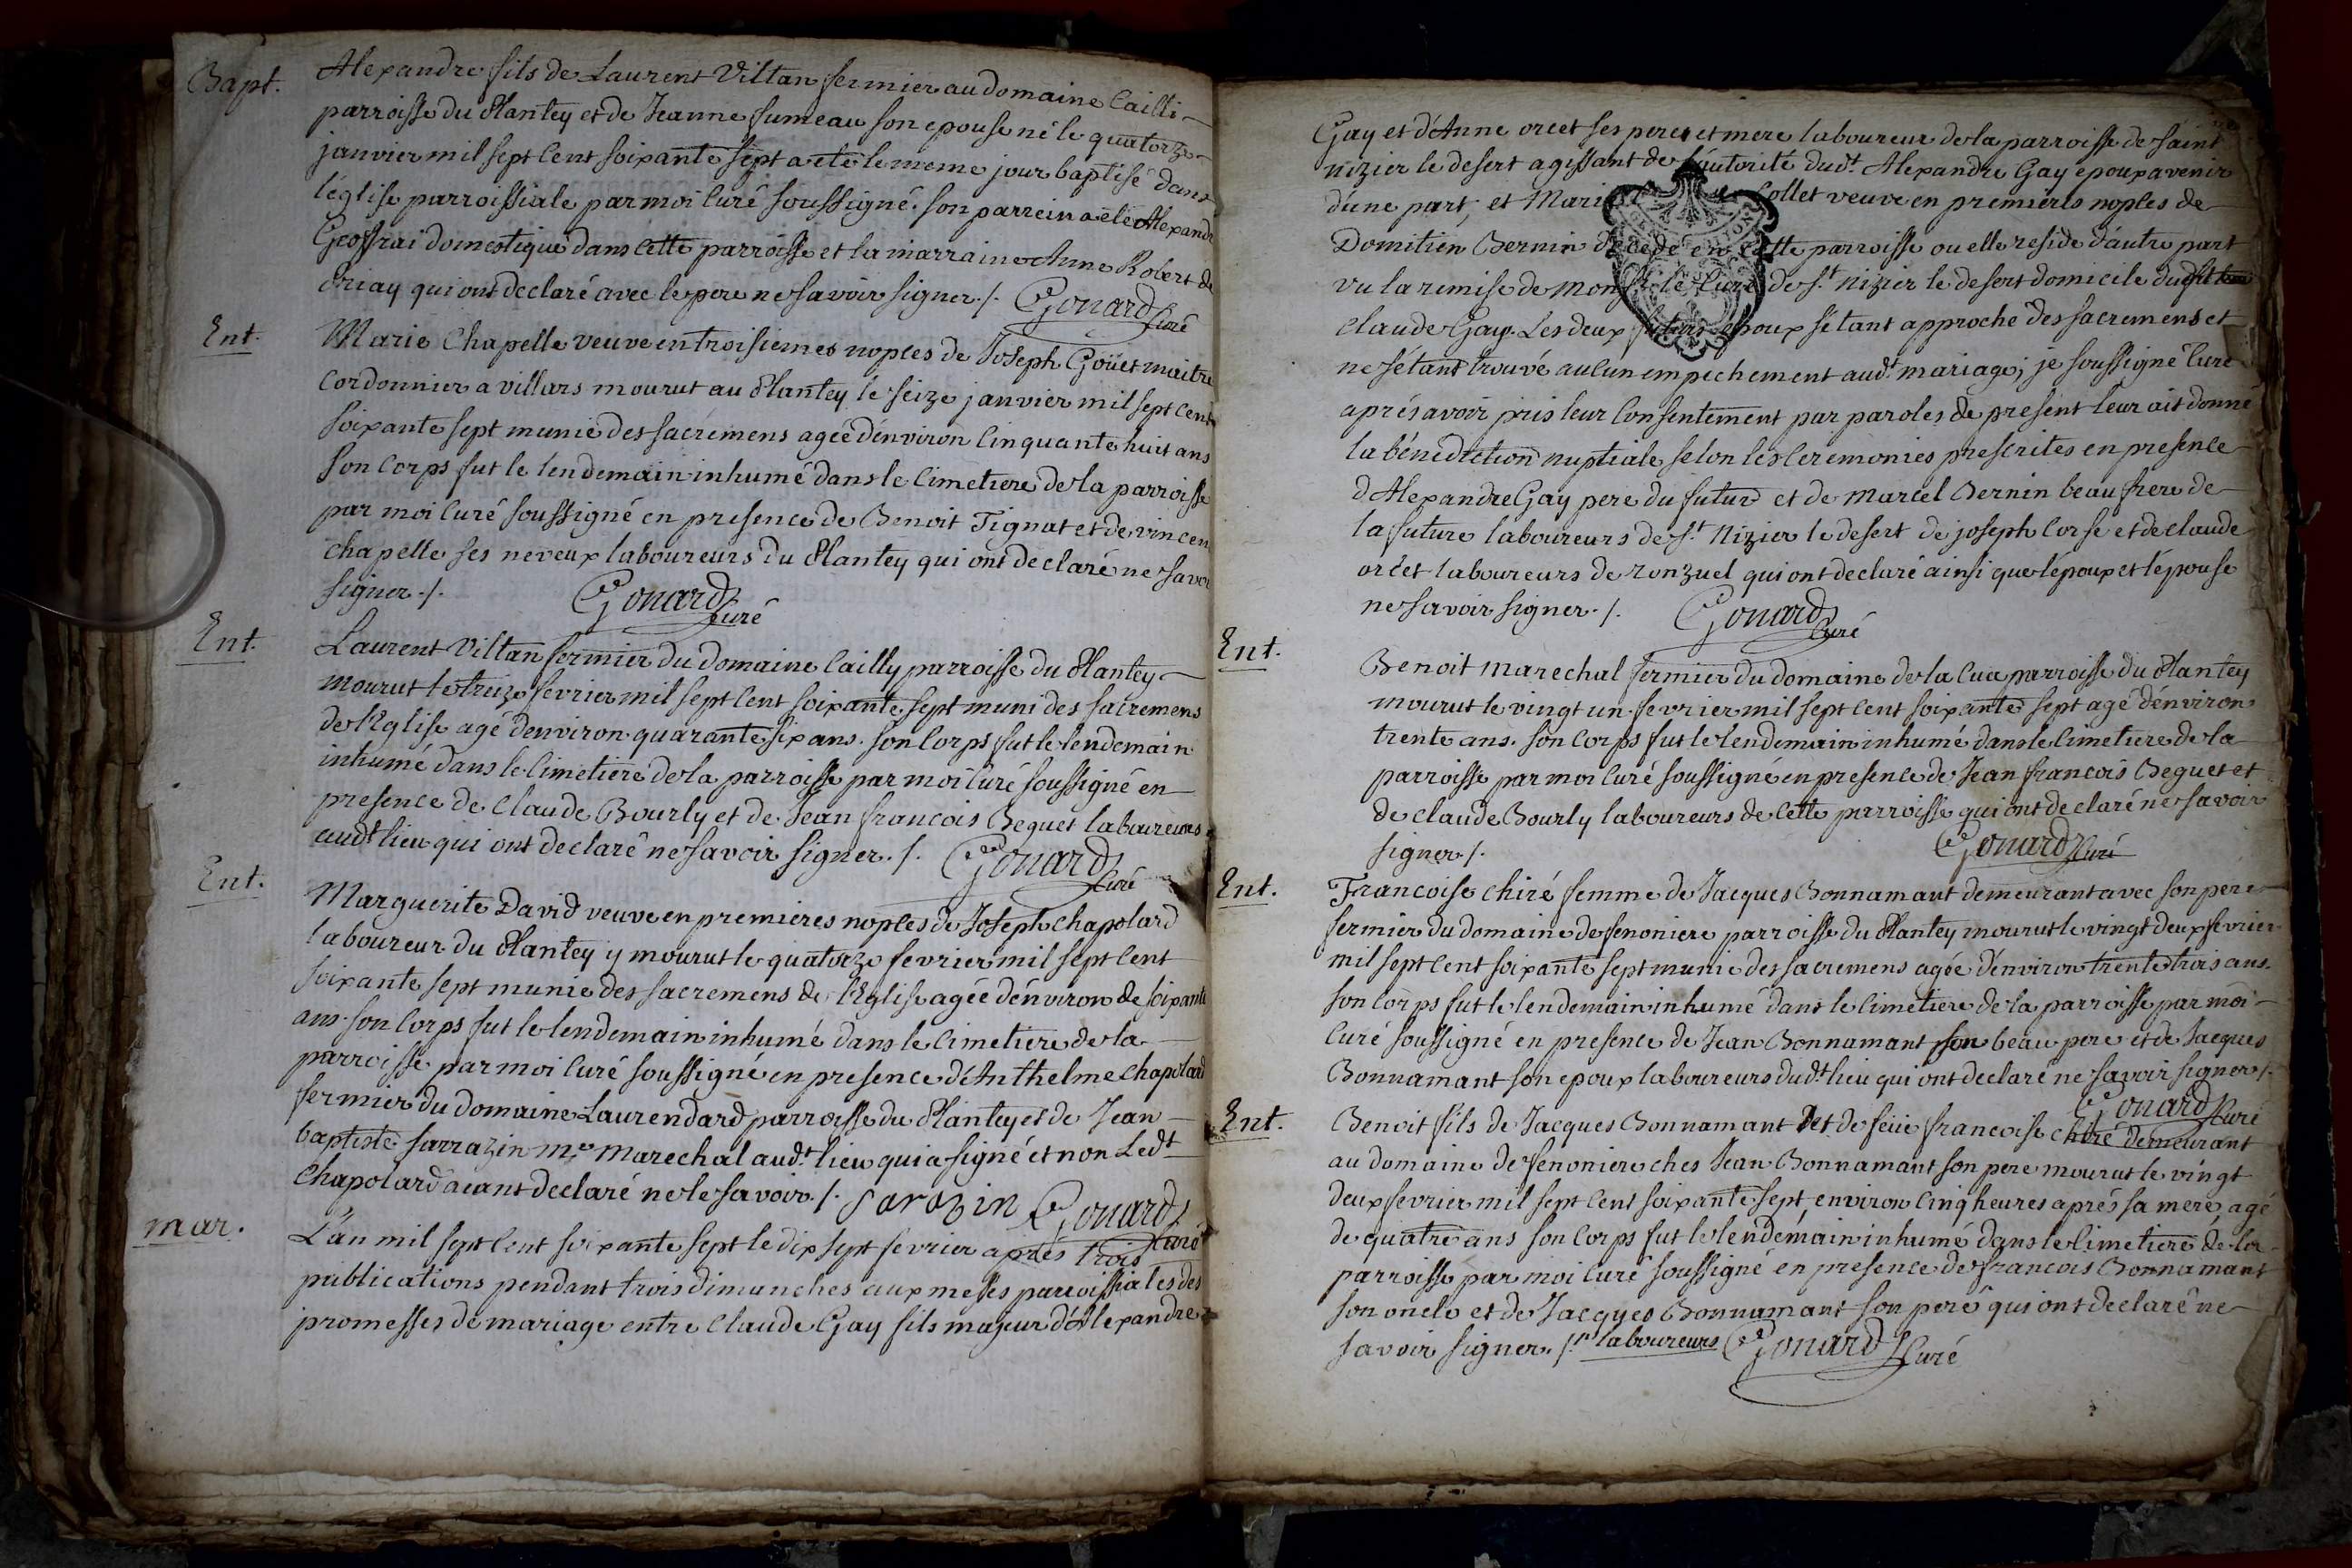 Bapt.
Alexandre fils de Laurent Viltan fermier au domaine Cailli
parroisse du Plantey et de Jeanne fumeau son epouse né le quatorze
janvier mil sept cent soixante sept a eté le meme jour baptisé dans
l'église parroissiale par moi curé soussigné. son parrein a eté Alexandr
Geoffrai domestique dans cette parroisse et la marraine Anne Robert de
driay qui ont declaré avec le pere ne savoir signer./. Gonard curé
Ent.
Marie Chapelle veuve en troisiemes noples de Joseph Goüet maitre
cordonnier a villars mourut au Plantey le seize janvier mil sept cent
soixante sept munie des sacremens agée d'environ cinquante huit ans
son corps fut le lendemain inhumé dans le cimetiere de la parroisse
par moi curé soussigné en presence de Benoit Tignat et de vincen
chapelle ses neveux laboureurs du Plantey qui ont declaré ne savoi
signer./. Gonard curé
Ent.
Laurent Viltan fermier du domaine Cailly parroisse du Plantey
mourut le treize fevrier mil sept cent soixante sept muni des sacremens
de l'Eglise agé d'environ quarante six ans. son corps fut le lendemain
inhumé dans le cimetiere de la parroisse par moi curé soussigné en
presence de Claude Bourly et de Jean francois Beguet laboureurs
audt lieu qui ont declaré ne savoir signer./. Gonard curé
Ent.
Marguerite David veuve en premieres noples de Joseph chapolard
laboureur du Plantey y mourut le quatorze fevrier mil sept cent
soixante sept munie des sacremens de l'Eglise agée d'environ de soixante
ans. son corps fut le lendemain inhumé dans le cimetiere de la
parroisse par moi curé soussigné en presence d'Anthelme chapolard
fermier du domaine Laurendard parroisse du Plantey et de Jean
baptiste sarrazin me marechal audt lieu qui a signé et non Ledt
Chapolard aiant declaré ne le savoir./. sarazin Gonard curé
mar.
L'an mil sept cent soixante sept le dix sept fevrier après trois
publications pendant trois dimanches aux messes parroissiales des
promesses de mariage entre Claude Gay fils majeur d'Alexandre
Gay et d'Anne orcet ses pere et mere laboureur de la parroisse de saint
nizier le desert agissant de l'autorité dudt Alexandre Gay epoux a venir
d'une part, et Mari Collet veuve en premieres noples de
Domitien Bernin decedé en cette parroisse ou elle reside d'autre part
vu la remise de Monsr le curé de st nizier le desert domicile dudit
claude Gay. Les deux futurs epoux s'etant approché des sacremens et
ne s'étant trouvé aucun empechement audt mariage; je soussigné curé
aprés avoir pris leur consentement par paroles de present leur ait donné
la bénédiction nuptiale selon les ceremonies prescrites en presence
d'Alexandre Gay pere du futur et de Marcel Bernin beau frere de
la future laboureurs de st Nizier le desert de joseph Corse et de claude
orcet laboureurs de ronzuel qui ont declaré ainsi que l'époux et l'épouse
ne savoir signer./. Gonard curé
Ent.
Benoit marechal fermier du domaine de la Cua parroisse du Plantey
mourut le vingt un fevrier mil sept cent soixante sept agé d'environ
trente ans. son corps fut le lendemain inhumé dans le cimetiere de la
parroisse par moi curé soussigné en presence de Jean francois Beguet et
de claude Bourly laboureurs de cette parroisse qui ont declaré ne savoir
signer./. Gonard curé
Ent.
Francoise chiré femme de Jacques Bonnamant demeurant avec son pere
fermier du domaine de senoniere parroisse du Plantey mourut le vingt deux fevrier
mil sept cent soixante sept munie des sacremens agée d'environ trente trois ans.
son corps fut le lendemain inhumé dans le cimetiere de la parroisse par moi
Curé soussigné en presence de Jean Bonnamant son beau pere et de Jacques
Bonnamant son epoux laboureurs dudt lieu qui ont declaré ne savoir signer./.
Gonard curé
Ent.
Benoit fils de Jacques Bonnamant et de feüe francoise chiré demeurant
au domaine de senoniere ches Jean Bonnamant son pere mourut le vingt
deux fevrier mil sept cent soixante sept environ cinq heures aprés sa mere, agé
de quatre ans son corps fut le lendemain inhumé dans le cimetiere de la
parroisse par moi curé soussigné en presence de francois Bonnamant
son oncle et de Jacques Bonnamant son pere qui ont declaré ne
savoir signer./. laboureurs Gonard curé